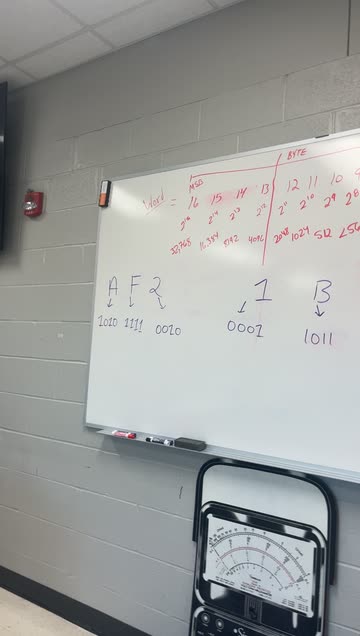 MSB BYTE
Word = 16 15 14 13 12 11 10 9
2¹⁴ 2¹³ 2¹² 2¹⁰ 2⁹ 2⁸
32,768 16,384 8192 4096 2048 1024 512 256
A F 2 1 B
1010 1111 0010 0001 1011